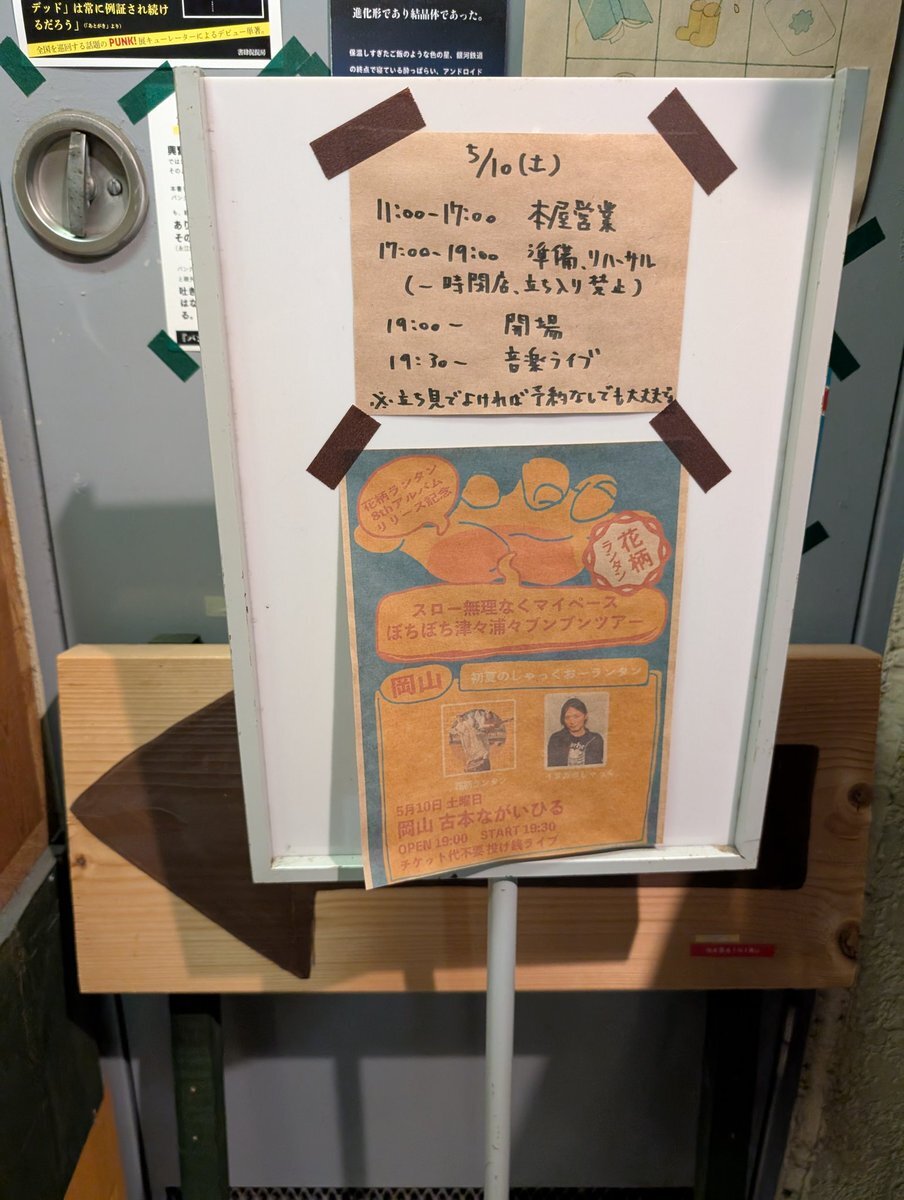 デッド」は常に例証され続け
るだろう」(「あとがき」より)
全国を巡回する話題のPUNK!展キュレーターによるデビュー単著。
書肆侃侃房
進化形であり結晶体であった。
保温しすぎたご飯のような色の星、銀河鉄道
の終点で寝ている酔っぱらい、アンドロイド
5/10(土)
11:00-17:00 本屋営業
17:00-19:00 準備、リハーサル
(一時閉店、立ち入り禁止)
19:00- 開場
19:30- 音楽ライブ
※立ち見でよければ予約なしでも大丈夫です
花柄ランタン
8thアルバム
リリース記念
花柄
ランタン
スロー無理なくマイペース
ぼちぼち津々浦々ブンブンツアー
岡山
初夏のしゃっくおーランタン
5月10日 土曜日
岡山 古本ながいひる
OPEN 19:00 START 19:30
チケット代不要 投げ銭ライブ